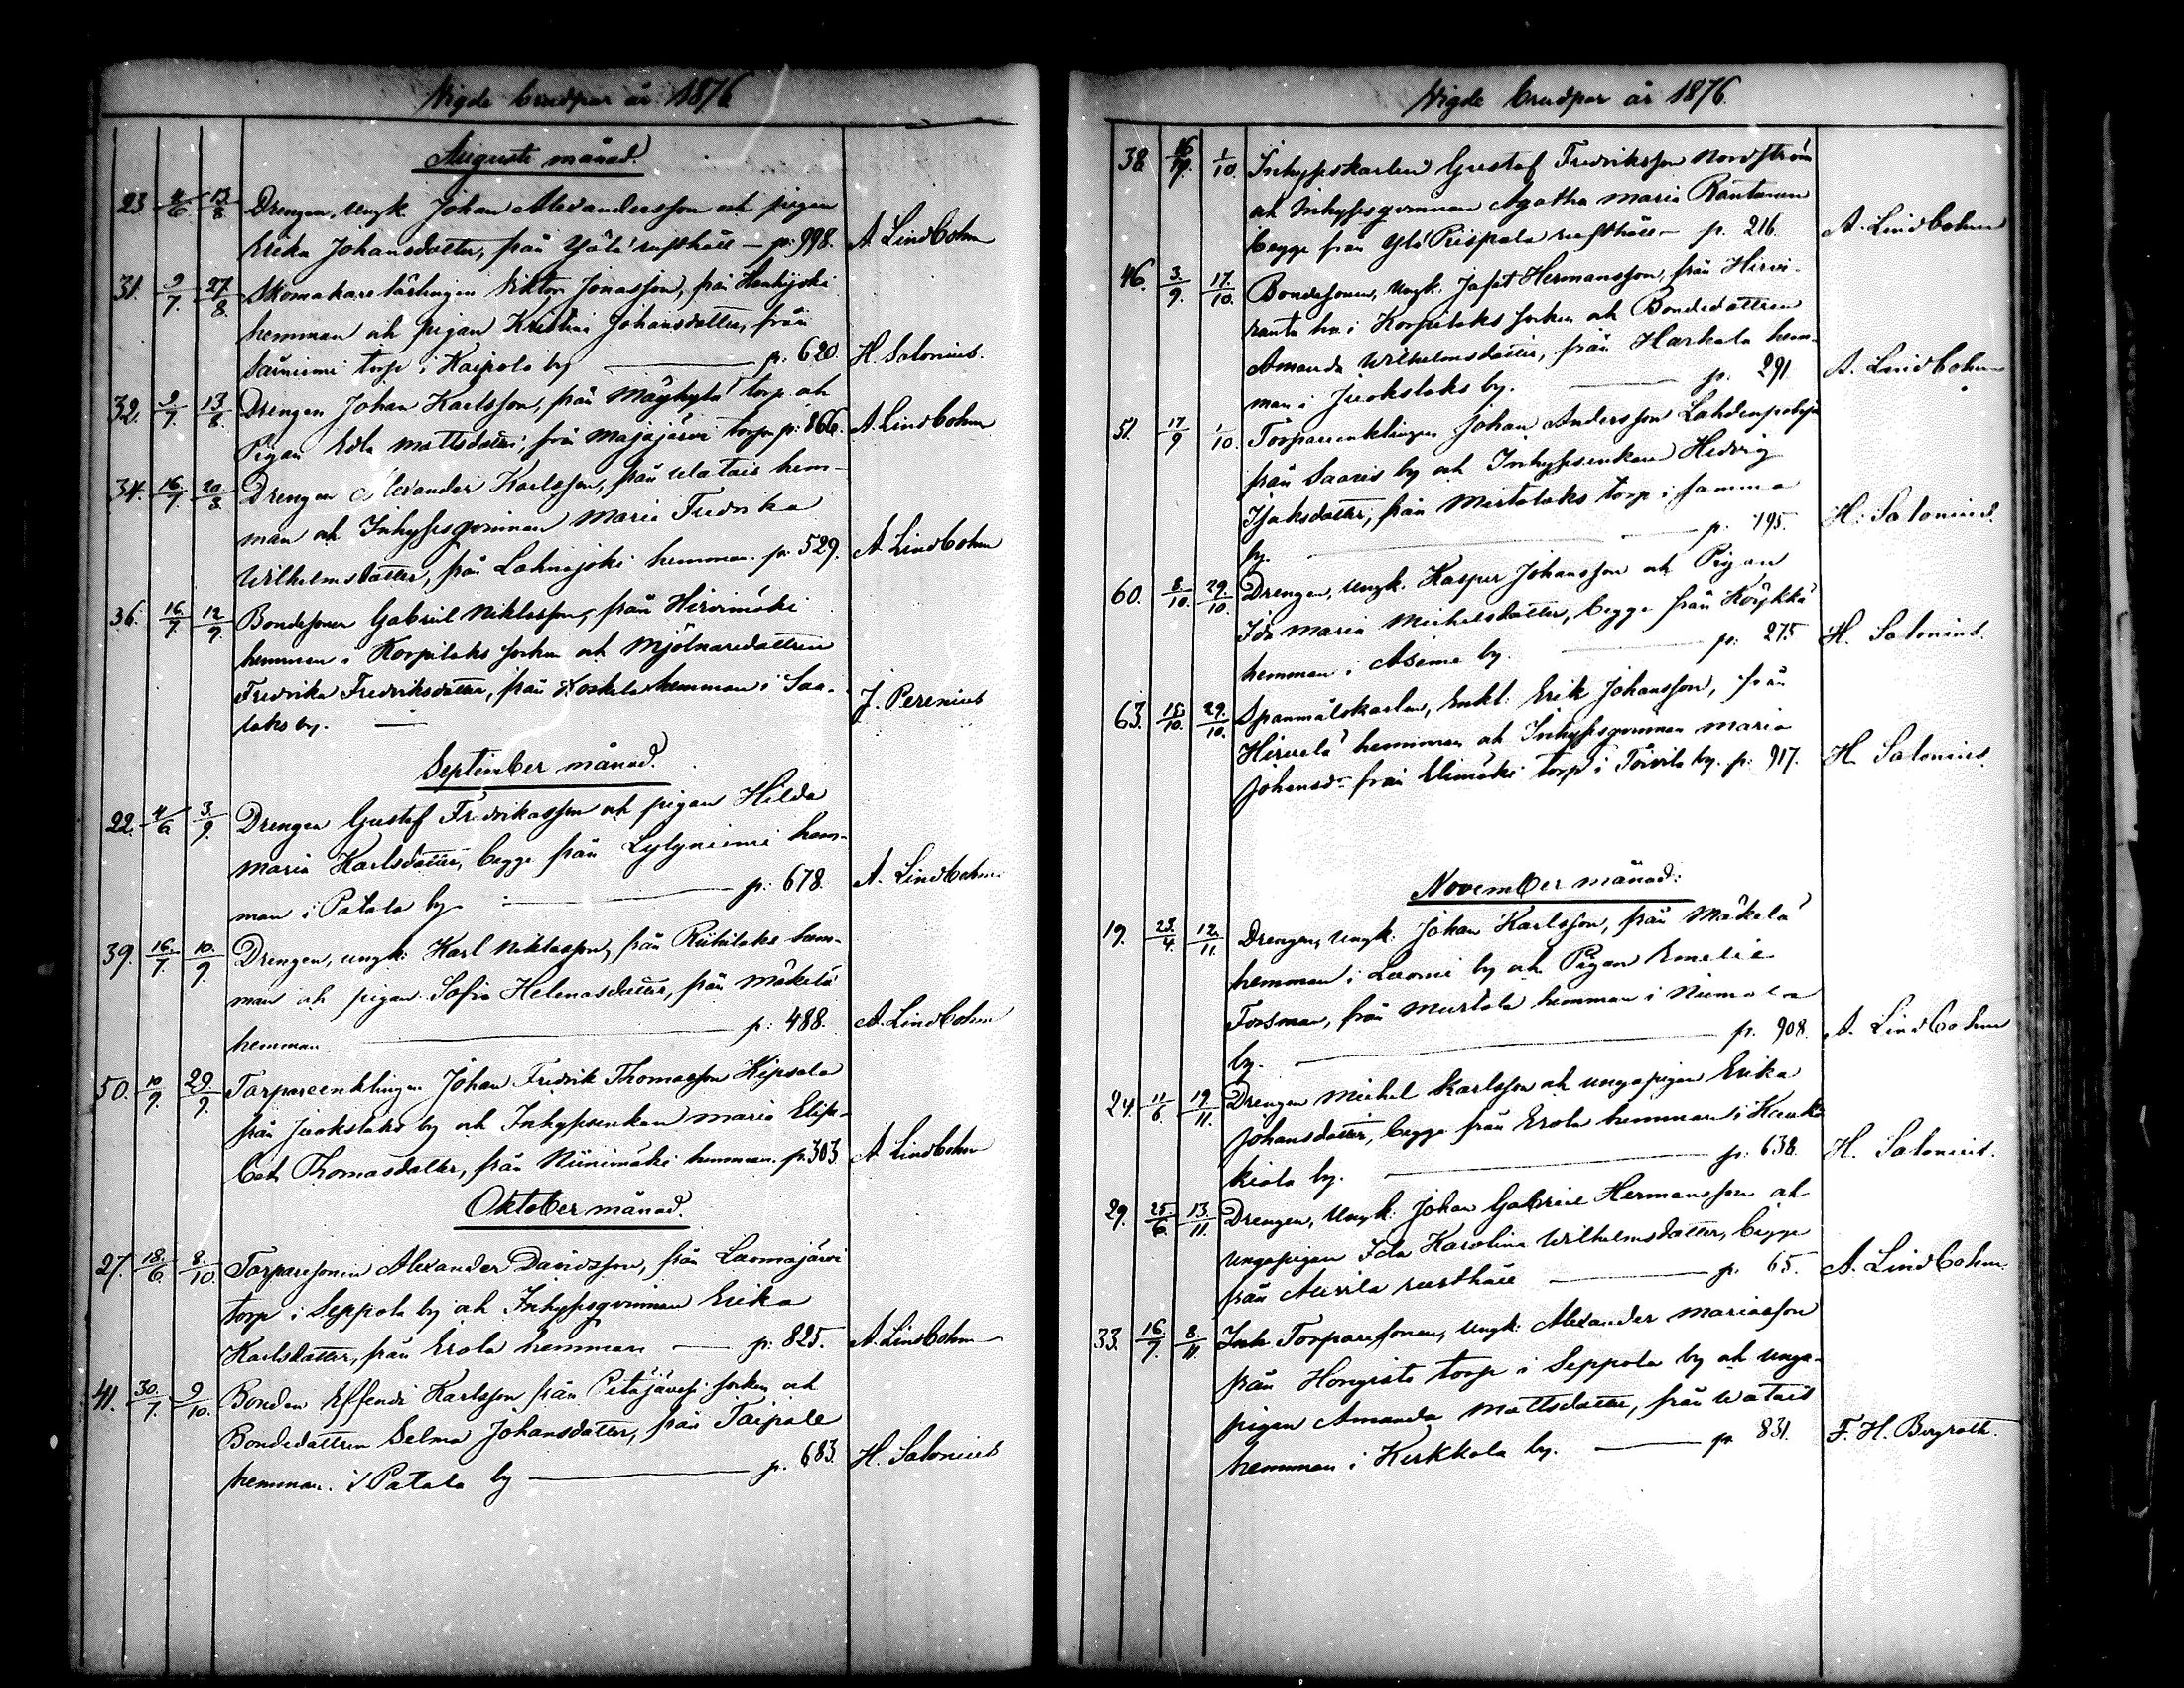 Vigde brudpar år 1876
Augusti månad.
23 4/6 13/8 Drengen, Ungk. Johan Alexandersson och pigan
Ericka Johansdotter, från rusthåll — p: 998. A. Lindbohm
31. 9/7. 27/8. Skomakare lärlingen Viktor Jonasson, från Honkijoki
hemman och pigan Kristina Johansdotter, från
Särniemi torp i Kaipola by — p: 620. H. Salonius.
32. 9/7. 13/8. Drengen Johan Karlsson, från Mäyhylä torp och
Pigan Edla Mattsdotter, från Majajärvi torp p: 866. A. Lindbohm
34. 16/7. 20/8 Drengen Alexander Karlsson, från Uotais hem-
man och Inhyses qvinnan Maria Fredrika
Wilhelmsdotter, från Lahnajoki hemman. p: 529. A. Lindbohm
36. 16/7. 12/9. Bondesonen Gabriel Niklasson, från Hirvimäki
hemman i Korpilaks socken och Mjölnaredottren
Fredrika Fredriksdotter, från Koskela hemman i Saa-
laks by. — J. Perenius
September månad.
22. 4/6 3/9. Drengen Gustaf Fredriksson och pigan Hilda
Maria Karlsdotter, begge från Lylyniemi hem-
man i Patala by — p: 678. A. Lindbohm
39. 16/7. 10/9. Drengen, ungk: Karl Niklasson, från Riihilaks hem-
man och pigan Sofia Helenasdotter, från Mäkelä
hemman — p: 488. A. Lindbohm
50. 10/9. 29/9. Torpareenklingen Johan Fredrik Thomasson Kipsala
från Juokslaks by och Inhysesenkan Maria Elisa-
beth Thomasdotter, från Niinimäki hemman. p. 303 A. Lindbohm
Oktober månad.
27. 18/6. 8/10. Torparesonen Alexander Davidsson, från Luomajärvi
torp i Seppola by och Inhyses qvinnan Erika
Karlsdotter, från Erola hemman — p: 825. A. Lindbohm
41. 30/7. 9/10. Bonden Effendi Karlsson från Petäjävesi socken och
Bondedottren Selma Johansdotter, från Taipale
hemman i Patala by — p. 683. H. Salonius
Vigde brudpar år 1876.
38 16/7. 1/10. Inhyseskarlen Gustaf Fredriksson Nordström
och Inhyses qvinnan Agatha Maria Rantanen
begge från Yli Prispala rusthåll — p. 216. A. Lindbohm
46. 3/9. 17/10. Bondesonen, Ungk. Jafet Hermansson, från Hirvi-
ranta hn i Korpilaks socken och Bondedottren
Amanda Wilhelmsdotter, från Harkala hem-
man i Juokslaks by. — p. 291 A. Lindbohm
51. 17/9 1/10. Torpareenklingen Johan Andersson Lahdenpohja
från Saaris by och Inhysesenkan Hedvig
Isaksdotter, från Mertolaks torp i samma
by. — p. 195. H. Salonius.
60. 8/10. 29/10. Drengen, Ungk. Kasper Johansson och Pigan
Ida Maria Michelsdotter, begge från Köykkä
hemman i Alseme by. — p: 275 H. Salonius.
63. 15/10. 29/10. Spanmålskarlen, Enkl. Erik Johansson, från
Hirvelä hemman och Inhyses qvinnan Maria
Johansd:r från Elimäki torp i Toivila by. p: 917. H. Salonius
November månad:
19. 23/4. 12/11. Drengen, Ungk. Johan Karlsson, från Mäkelä
hemman i Luomi by och Pigan Emelie
Forsman, från Murtola hemman i Niemola
by. — p. 908. A. Lindbohm
24. 11/6 19/11. Drengen Michel Karlsson och ungapigan Erika
Johansdotter, begge från Erola hemman i Kauk-
kiola by. — p: 638. H. Salonius.
29. 25/6. 13/11. Drengen, Ungk: Johan Gabriel Hermansson och
Ungapigan Ida Karolina Wilhelmsdotter, begge
från Auvila rusthåll — p. 65. A. Lindbohm.
33. 16/7. 8/11. Inh. Torparesonen, Ungk. Alexander Mariasson
från Hongisto torp i Seppola by och Unga-
pigan Amanda Mattsdotter, från Watais
hemman i Kerkkola by. — p 831. F. H. Bergroth.